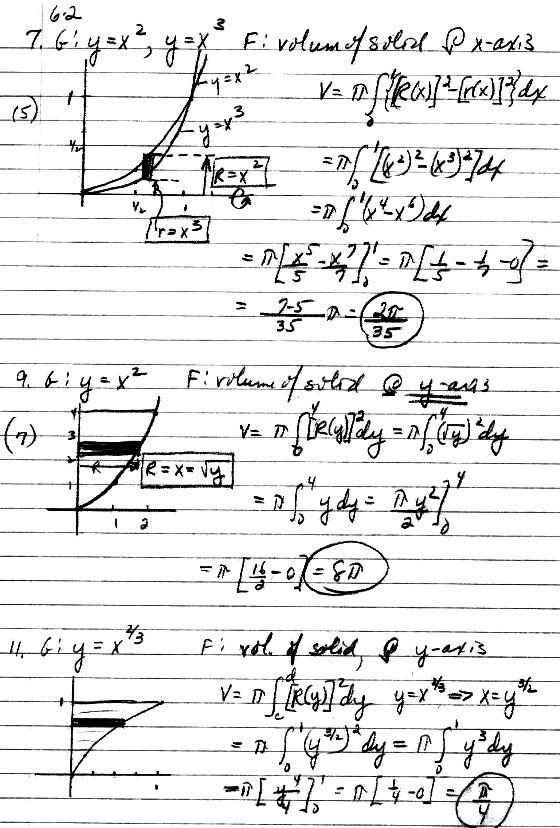 6.2
7. G: y=x², y=x³ F: volume of solid @ x-axis
(5)
1
½
y=x²
y=x³
R=x²
½
1
r=x³
V = π∫₀¹{[R(x)]²-[r(x)]²}dx
=π∫₀¹[(x²)²-(x³)²]dx
=π∫₀¹(x⁴-x⁶)dx
= π[x⁵/5 - x⁷/7]₀¹ = π[1/5 - 1/7 -0] =
= 7-5/35 π = 2π/35
9. G: y=x² F: volume of solid @ y-axis
(7)
4
3
2
1
R
R=x=√y
1 2
V= π∫₀⁴[R(y)]²dy = π∫₀⁴(√y)²dy
= π∫₀⁴ y dy = πy²/2]₀⁴
= π[16/2 - 0] = 8π
11. G: y = x^(2/3) F: vol. of solid, @ y-axis
1
V= π∫_c^d[R(y)]²dy y=x^(2/3) => x=y^(3/2)
= π∫₀¹(y^(3/2))²dy = π∫₀¹ y³dy
=π[y⁴/4]₀¹ = π[1/4 -0] = π/4